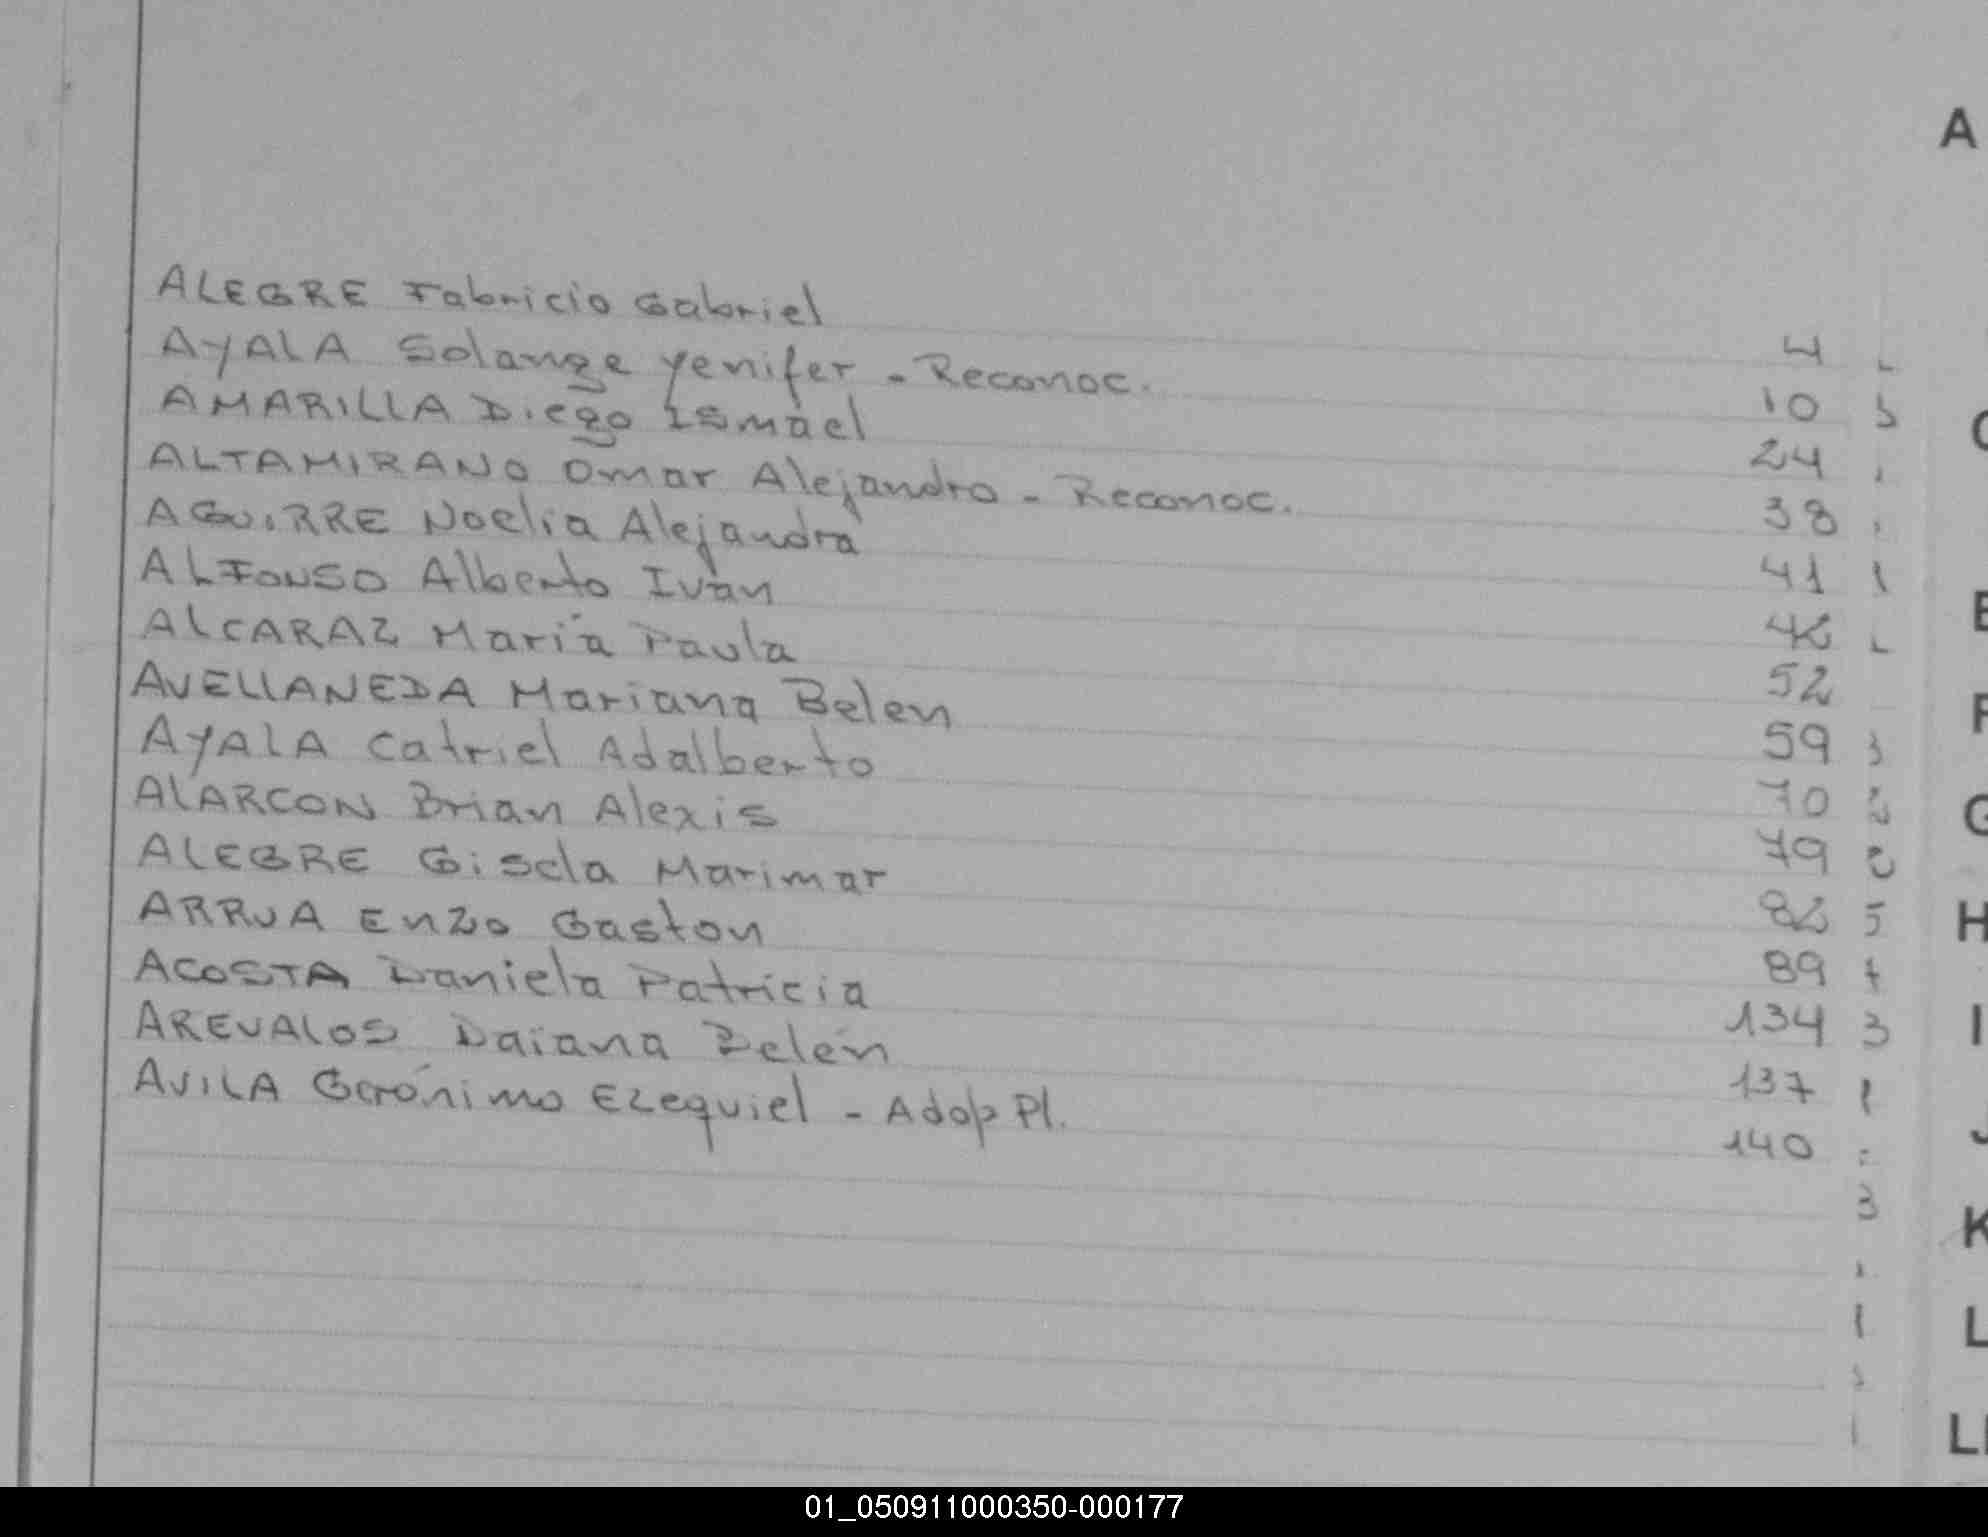 A
ALEGRE Fabricio Gabriel 4
AYALA Solange Yenifer - Reconoc. 10
AMARILLA Diego Ismael 24
ALTAMIRANO Omar Alejandro - Reconoc. 38
AGUIRRE Noelia Alejandra 41
ALFONSO Alberto Iván
ALCARAZ María Paula 52
AVELLANEDA Mariana Belen 59
AYALA Catriel Adalberto 70
ALARCON Brian Alexis 79
ALEGRE Gisela Marimar
ARRUA Enzo Gaston 89
ACOSTA Daniela Patricia 134
AREVALOS Daiana Belén 137
AVILA Gerónimo Ezequiel - Adop Pl. 140
E
F
G
H
I
J
K
L
LL
01_050911000350-000177